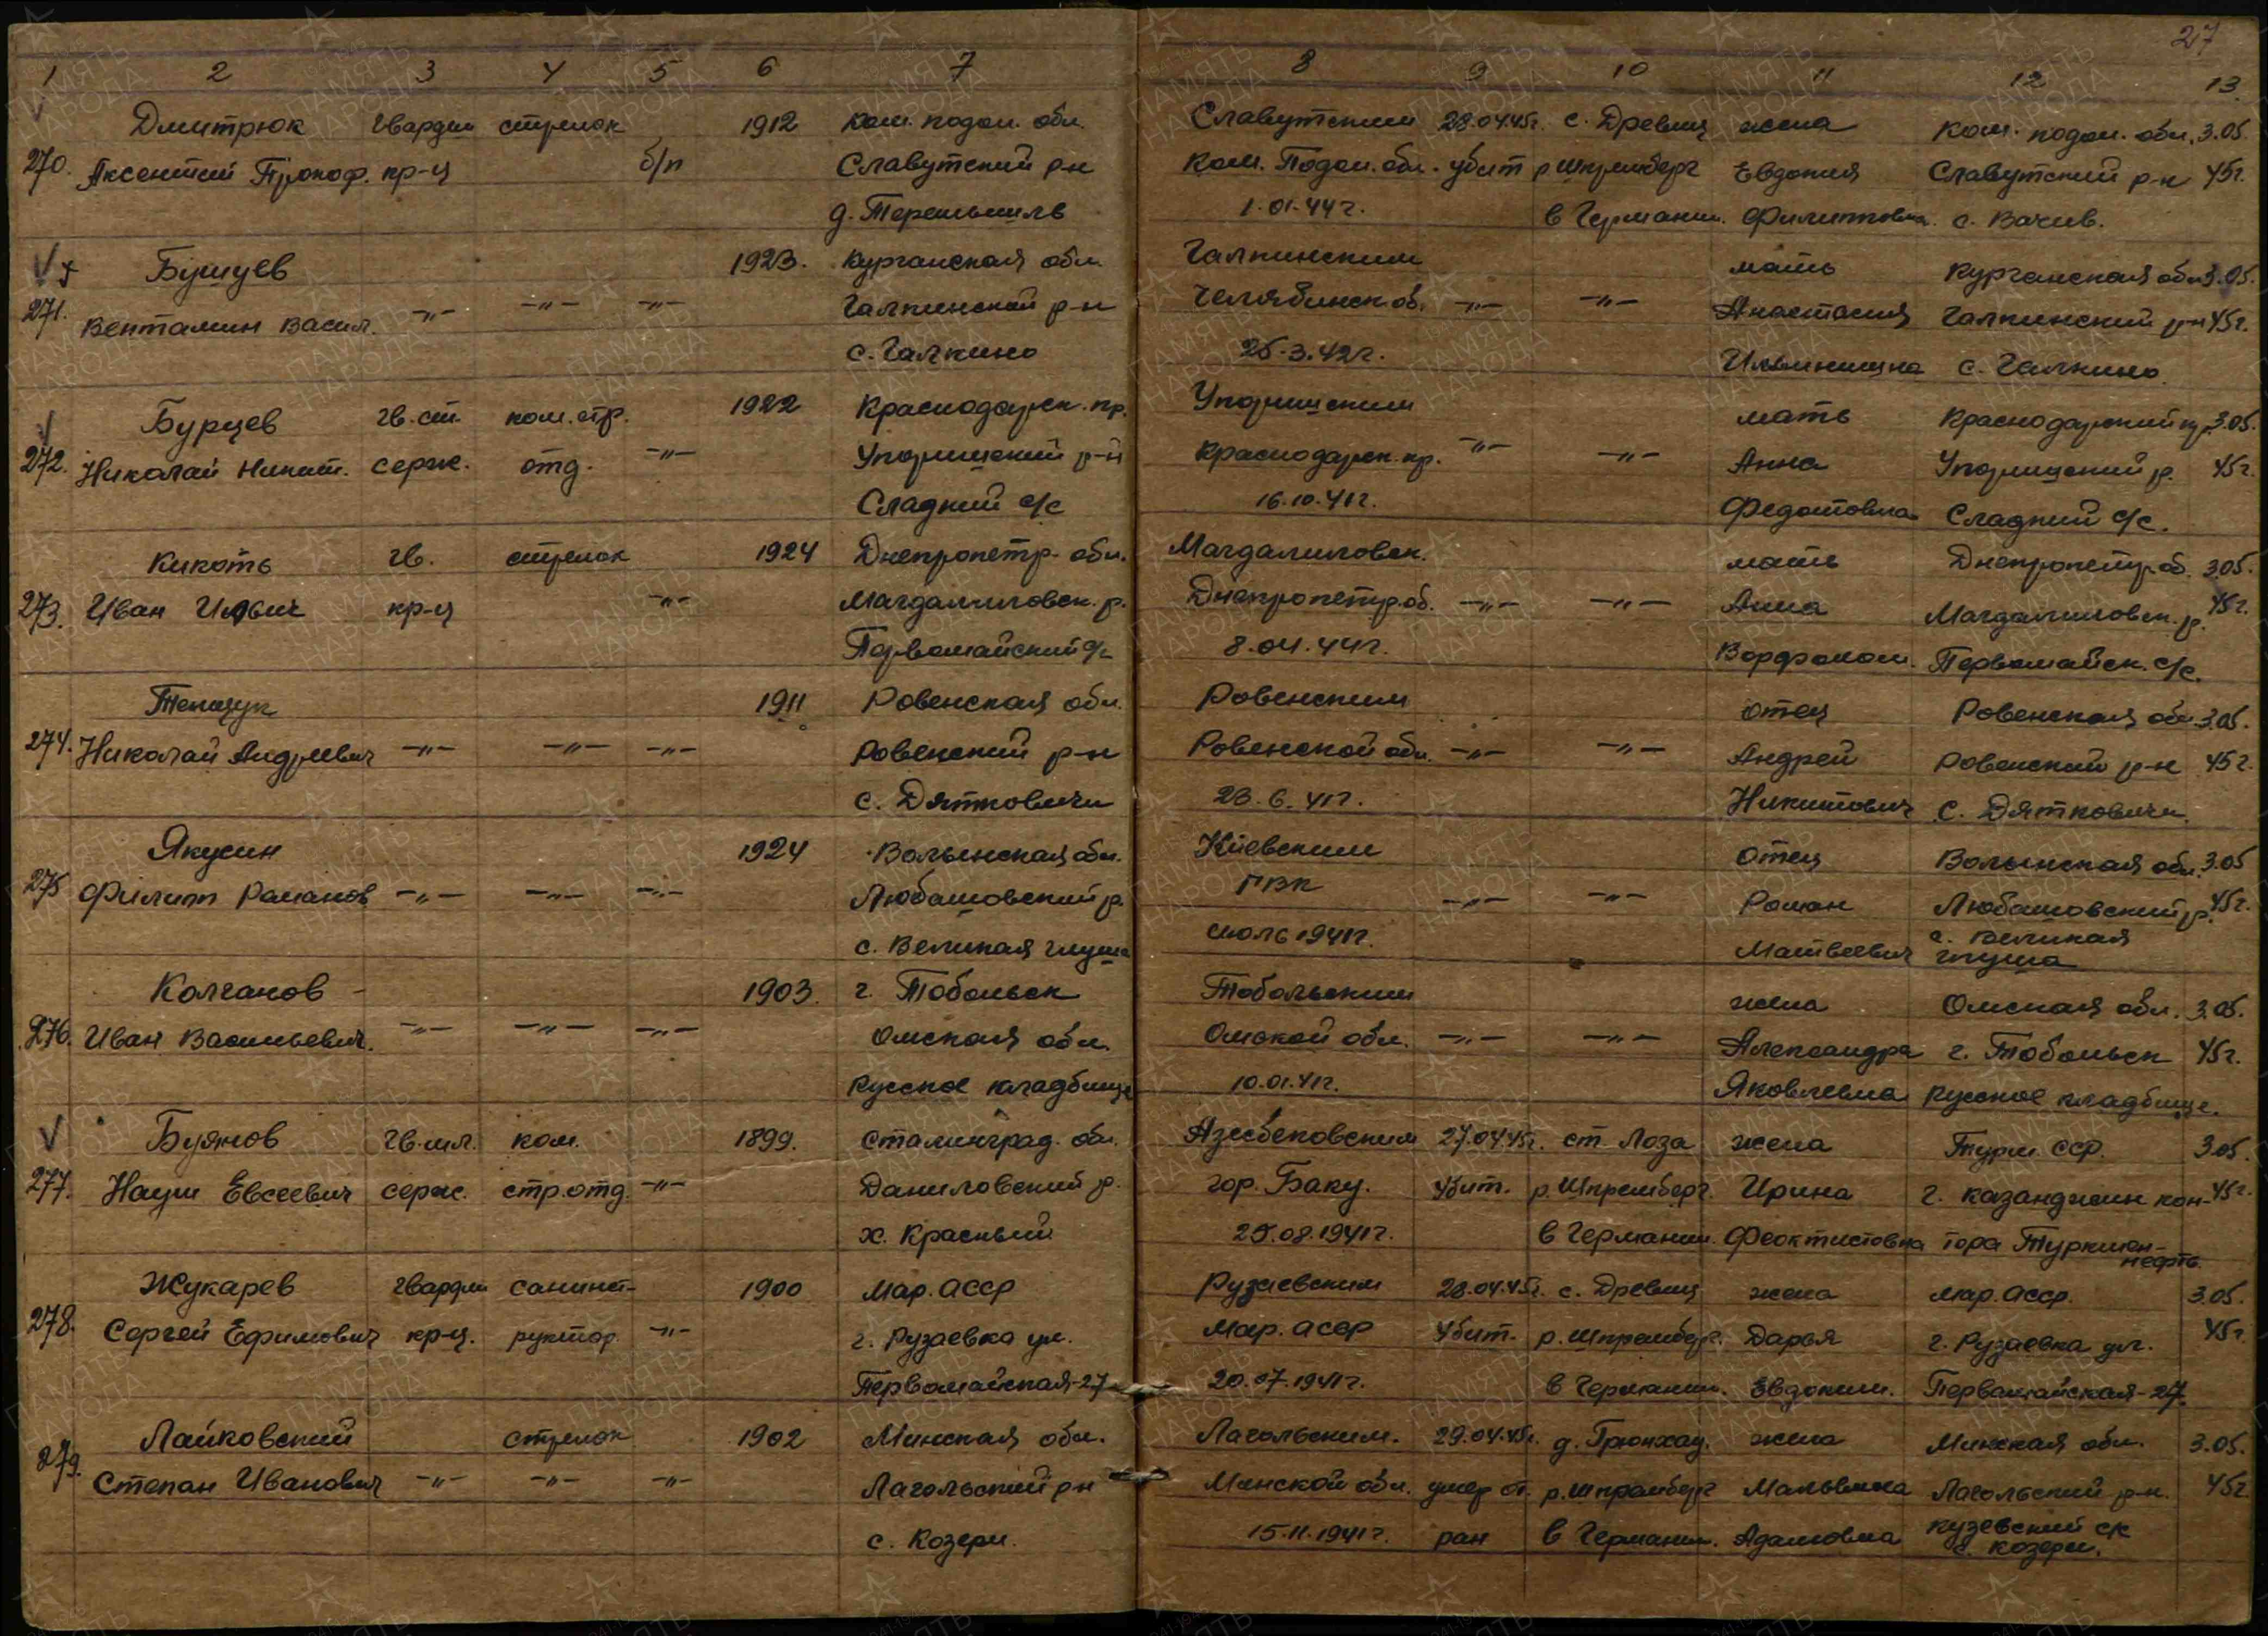 27
1 2 3 4 5 6 7 8 9 10 11 12 13
Дмитрюк гвардии стрелок 1912 Кам. подол. обл. Славутским 28.04.45г. с. Древиц жена Кам. подол. обл. 3.05.
270. Аксентий Прокоф. кр-ц б/п Славутский р-н Кам. Подол. обл. убит р. Шпремберг Евдокия Славутский р-н 45г.
д. 1.01.44г. в Германии. Филипповна с.
Бушуев 1923. Курганская обл. Галкинским мать Курганская обл 3.05.
271. Вентамин Васил. -"- -"- -"- Галкинский р-н Челябинск об. -"- -"- Анастасия Галкинский р-н 45г.
с. Галкино 25.3.42г. Ильинишна с. Галкино
Бурцев гв. ст. ком. стр. 1922 Краснодарск. кр. мать Краснодарский кр. 3.05.
272. Николай Никит. серж. отд. -"- р-н Краснодарск. кр. -"- -"- Анна р. 45г.
Сладкий с/с 16.10.41г. Федотовна Сладкий с/с.
Кикоть гв. стрелок 1924 Днепропетр. обл. Магдалиновск. мать Днепропетр. об. 3.05.
273. Иван кр-ц -"- Магдалиновск. р. Днепропетр. об. -"- -"- Анна Магдалиновск. р. 45г.
Первомайский с/с 8.04.44г. Первомайск. с/с.
1911 Ровенская обл. Ровенским отец Ровенская обл. 3.05.
274. Николай Андреевич -"- -"- -"- Ровенский р-н Ровенской обл. -"- -"- Андрей Ровенский р-н 45г.
с. Дятковичи 23.6.41г. Никитович с. Дятковичи.
Якусин 1924 Волынская обл. Киевским отец Волынская обл. 3.05
275 Филипп Романов -"- -"- -"- Любашовский р. ГВК -"- -"- Роман Любашовский р. 45г.
с. Великая глуша 1941г. Матвеевич с. Великая
глуша
Колганов 1903. г. Тобольск Тобольским жена Омская обл. 3.05.
276. Иван Васильевич. -"- -"- -"- Омская обл. Омской обл. -"- -"- Александра г. Тобольск 45г.
Русское кладбище 10.01.41г. Яковлевна Русское кладбище.
Буянов гв. мл. ком. 1899. Сталинград. обл. Азесбековским 27.04.45г. ст. Лоза жена Турм. ССР. 3.05.
277. Наум Евсеевич серж. стр. отд. -"- Даниловский р. гор. Баку. убит. р. Шпремберг. Ирина г. Казанджик кон- 45г.
х. Красный 25.08.1941г. в Германии. Феоктистовна тора Туркмен-
нефть
Жукарев гвардии санинст- 1900 Мар. АССР Рузаевским 28.04.45г. с. Древиц жена Мар. АССР. 3.05.
278. Сергей Ефимович кр-ц. руктор. -"- г. Рузаевка ул. Мар. АССР убит. р. Шпремберг. Дарья г. Рузаевка ул. 45г.
Первомайская-27 20.07.1941г. в Германии. Евдоким. Первомайская-27.
Лайковский стрелок 1902 Минская обл. Лагольским. 29.04.45г. д. Грюнхауз. жена Минская обл. 3.05.
279. Степан Иванович -"- -"- -"- Лагольский р-н Минской обл. умер от. р. Шпремберг Мальвина Лагольский р-н. 45г
с. Козери. 15.11.1941г. ран в Германии. Адамовна с/с
с. Козери.